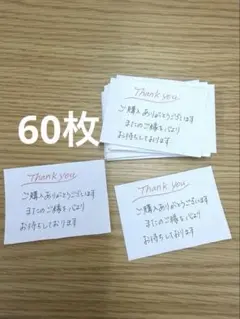 Thank you
ご購入ありがとうございます
またのご縁を心より
お待ちしております
60枚
Thank you
ご購入ありがとうございます
またのご縁を心より
お待ちしております
Thank you
ご購入ありがとうございます
またのご縁を心より
お待ちしております